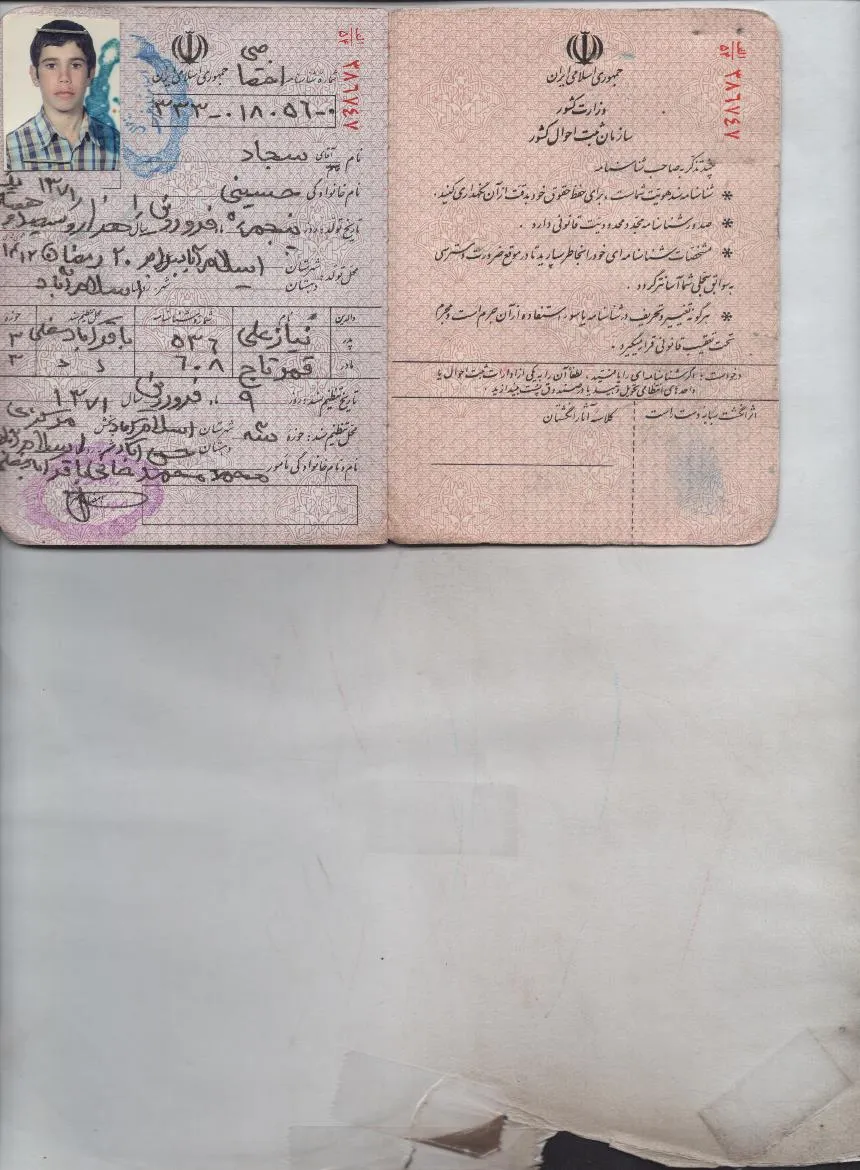 جمهوری اسلامی ایران
وزارت کشور
سازمان ثبت احوال کشور
چند تذکر به صاحب شناسنامه
* شناسنامه سند هویت شماست، برای حفظ حقوق خود بدقت از آن نگهداری کنید.
* صدور شناسنامه مجدد محدودیت قانونی دارد.
* مشخصات شناسنامه ای خود را بخاطر بسپارید تا در موقع ضرورت دسترسی
به سوابق سجلی شما آسانتر گردد.
* هرگونه تغییر و تحریف در شناسنامه یا سوء استفاده از آن جرم است و مجرم
تحت تعقیب قانونی قرار میگیرد.
درخواست: اگر شناسنامه ای را یافتید، لطفاً آن را به یکی از ادارات ثبت احوال یا
واحدهای انتظامی تحویل دهید یا در صندوق پست بیندازید.
اثر انگشت سبابه دست است
کلاسه آثار انگشتان
الف
۵۴
۲۸۶۷۴۷
جمهوری اسلامی ایران
شماره شناسنامه اختصاصی
۳۳۳-۰۱۸۰۵۶-۰
نام آقای سجاد
نام خانوادگی حسینی
تاریخ تولد: روز پنجم ماه فروردین سال هزار و سیصد و
۱۳۷۱
محل تولد: شهرستان اسلام آباد ۲۰ رمضان ۱۴۱۲
دهستان اسلام آباد
والدین نام شماره شناسنامه محل تنظیم سند حوزه
پدر نیازعلی ۵۳۶ ۳
مادر قمر تاج ۶۰۸ ۳
تاریخ تنظیم سند: روز ۹ ماه فروردین سال ۱۳۷۱
محل تنظیم سند: حوزه سه شهرستان اسلام آباد بخش مرکزی
دهستان
نام و نام خانوادگی مأمور محمد
الف
۵۴
۲۸۶۷۴۷